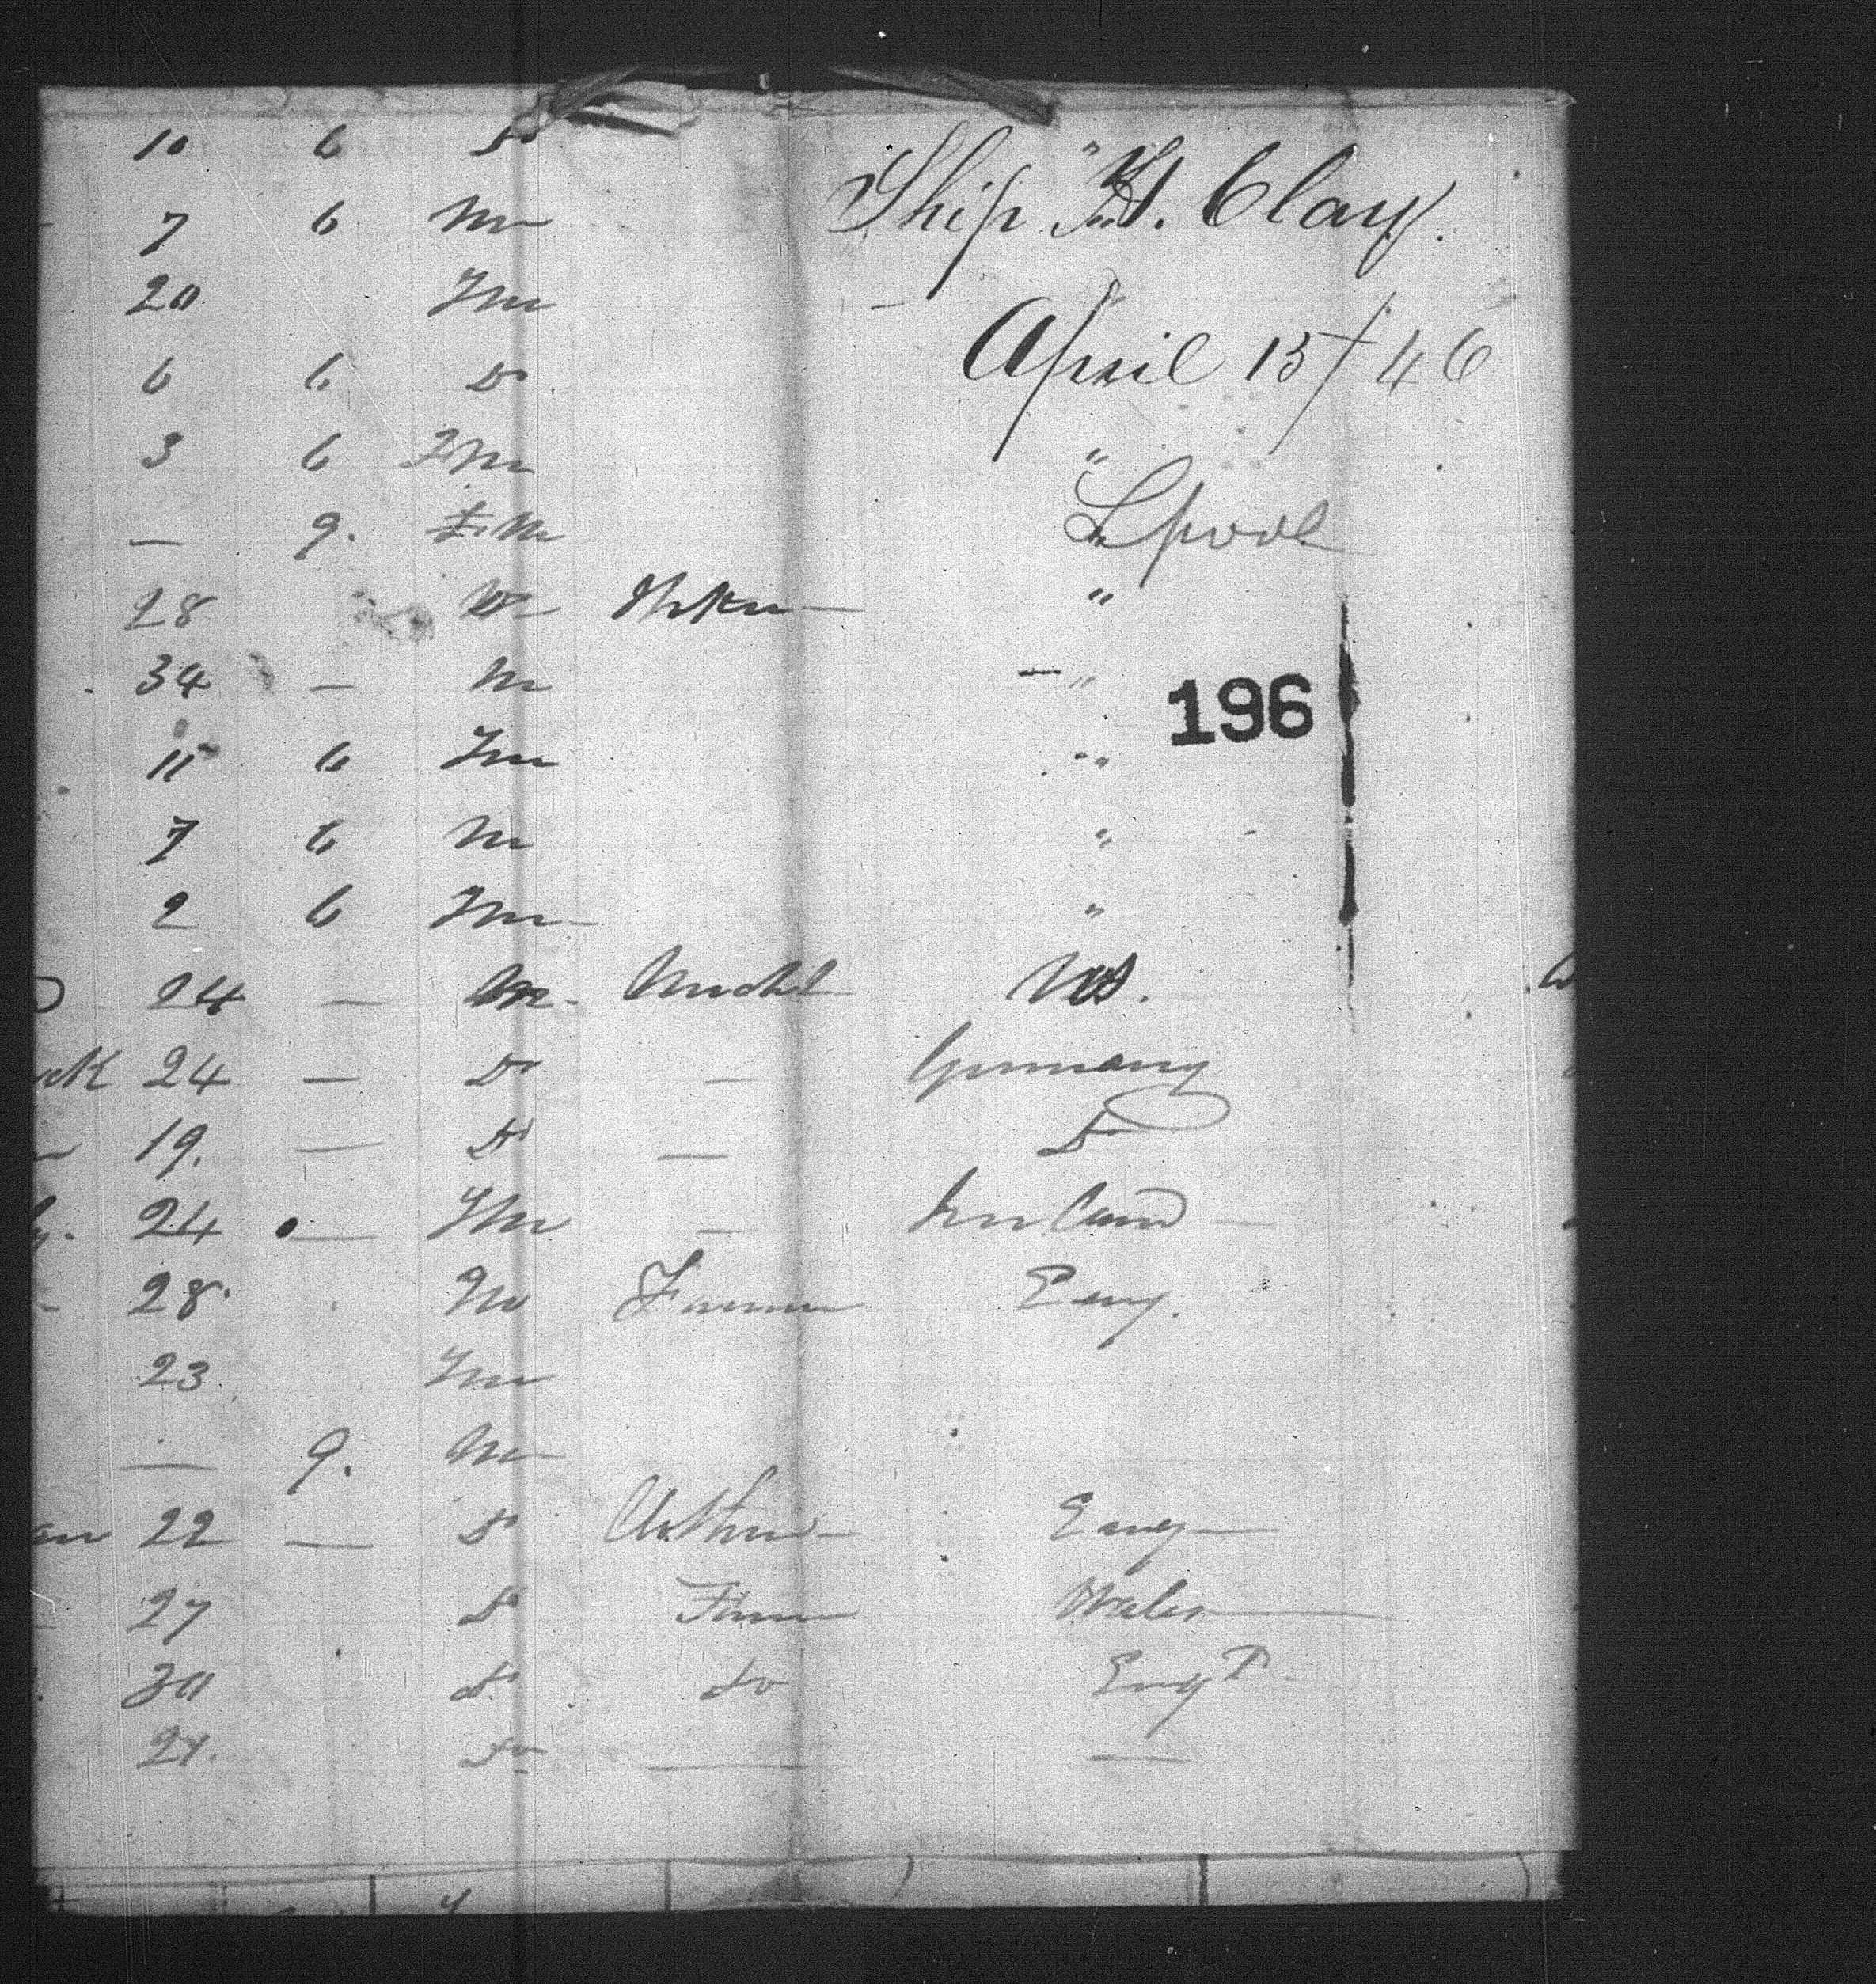 10 6 Do
Ship H. Clay.
7 6 M
20 Fm
April 15/46
6 6 Do
3 6 Fm
"
— 9. M
Lpool
28 "
34 — M "
196
11 6 Fm "
7 6 M "
2 6 Fm "
24 — M. U.S.
ck 24 — Do — Germany
19. — Do — Do
24 — Fm — Ireland
28 M Farmer Eng.
23 Fm
— 9. M
22 — Do Eng
27 Do Farmer Wales
30 Do do Engd
21. Do — —